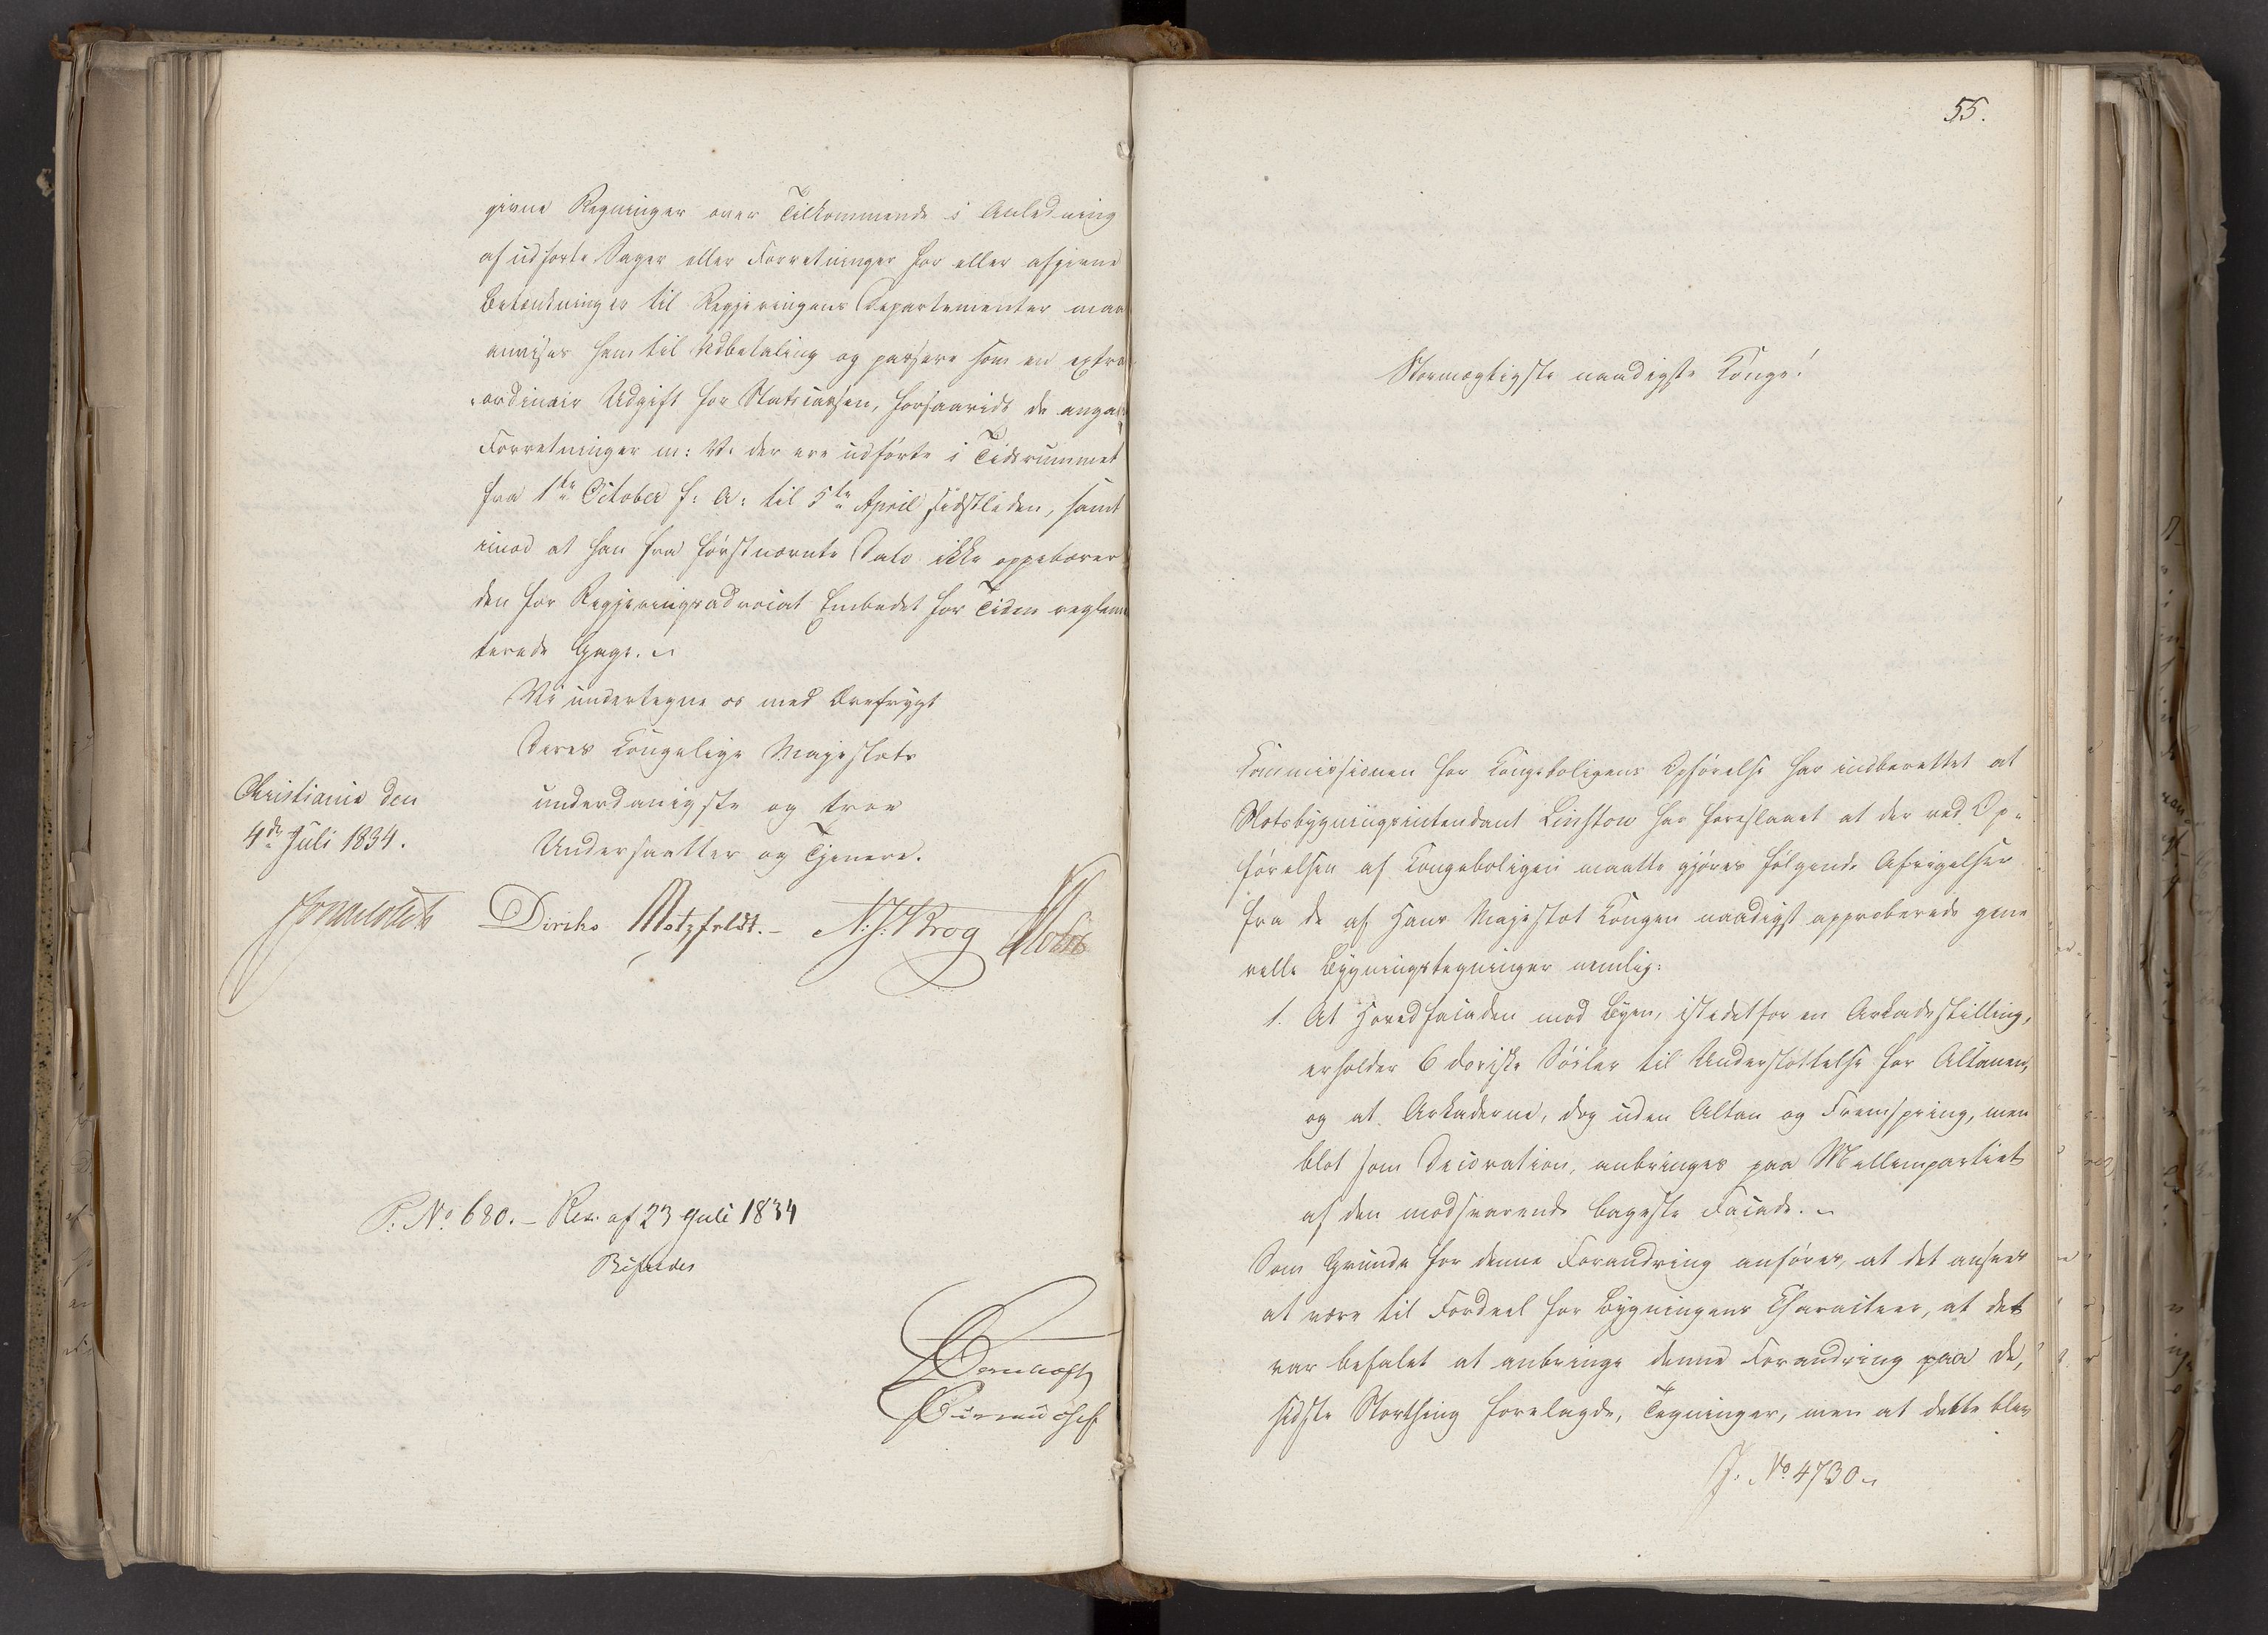 givne Regninger over Tilkommende i Anledning
af udførte Sager eller Forretninger for eller afgivne
Betænkninger til Regjeringens Departementer maa
anvises ham til Udbetaling og passere som en extra
ordinair Udgift for Statscassen, forsaavidt de angaae
Forretninger m: V. der ere udførte i Tidsrummet
fra 1ste October f: A: til 5te April sidstleden, samt
imod at han fra førstnævnte Dato ikke oppebærer
den for Regjeringsadvocat Embedet for Tiden reglemen
terede Gage.
Vi undertegne os med Ærefrygt
Deres Kongelige Majestæts
underdanigste og troe
Undersaatter og Tjenere.
Christiania den
4de Juli 1834.
Diriks Motzfeldt.- N. J. Krog Holst
P. No 680. – Res. af 23 Juli 1834
Bifaldes
Bureauchef
55.
Stormægtigste naadigste Konge!
Commissionen for Kongeboligens Opførelse har indberettet at
Slotsbygningsintendant Linstow har foreslaaet at der ved Op-
førelsen af Kongeboligen maatte gjøres følgende Afvigelser
fra de af Hans Majestæt Kongen naadigst approberede gene
relle Bygningstegninger nemlig:
1. At Hovedfacaden mod Byen, istedetfor en Arkadestilling,
erholder 6 doriske Søiler til Understøttelse for Altanen,
og at Arkaderne, dog uden Altan og Fremspring, men
blot som Decoration, anbringes paa Mellempartiet
af den modsvarende bageste Facade.
Som Grunde for denne Forandring anføres, at det ansees
at være til Fordeel for Bygningens Characteer, at det
var befalet at anbringe denne Forandring paa de,
sidste Storthing forelagde, Tegninger, men at dette blev
J. No 4730